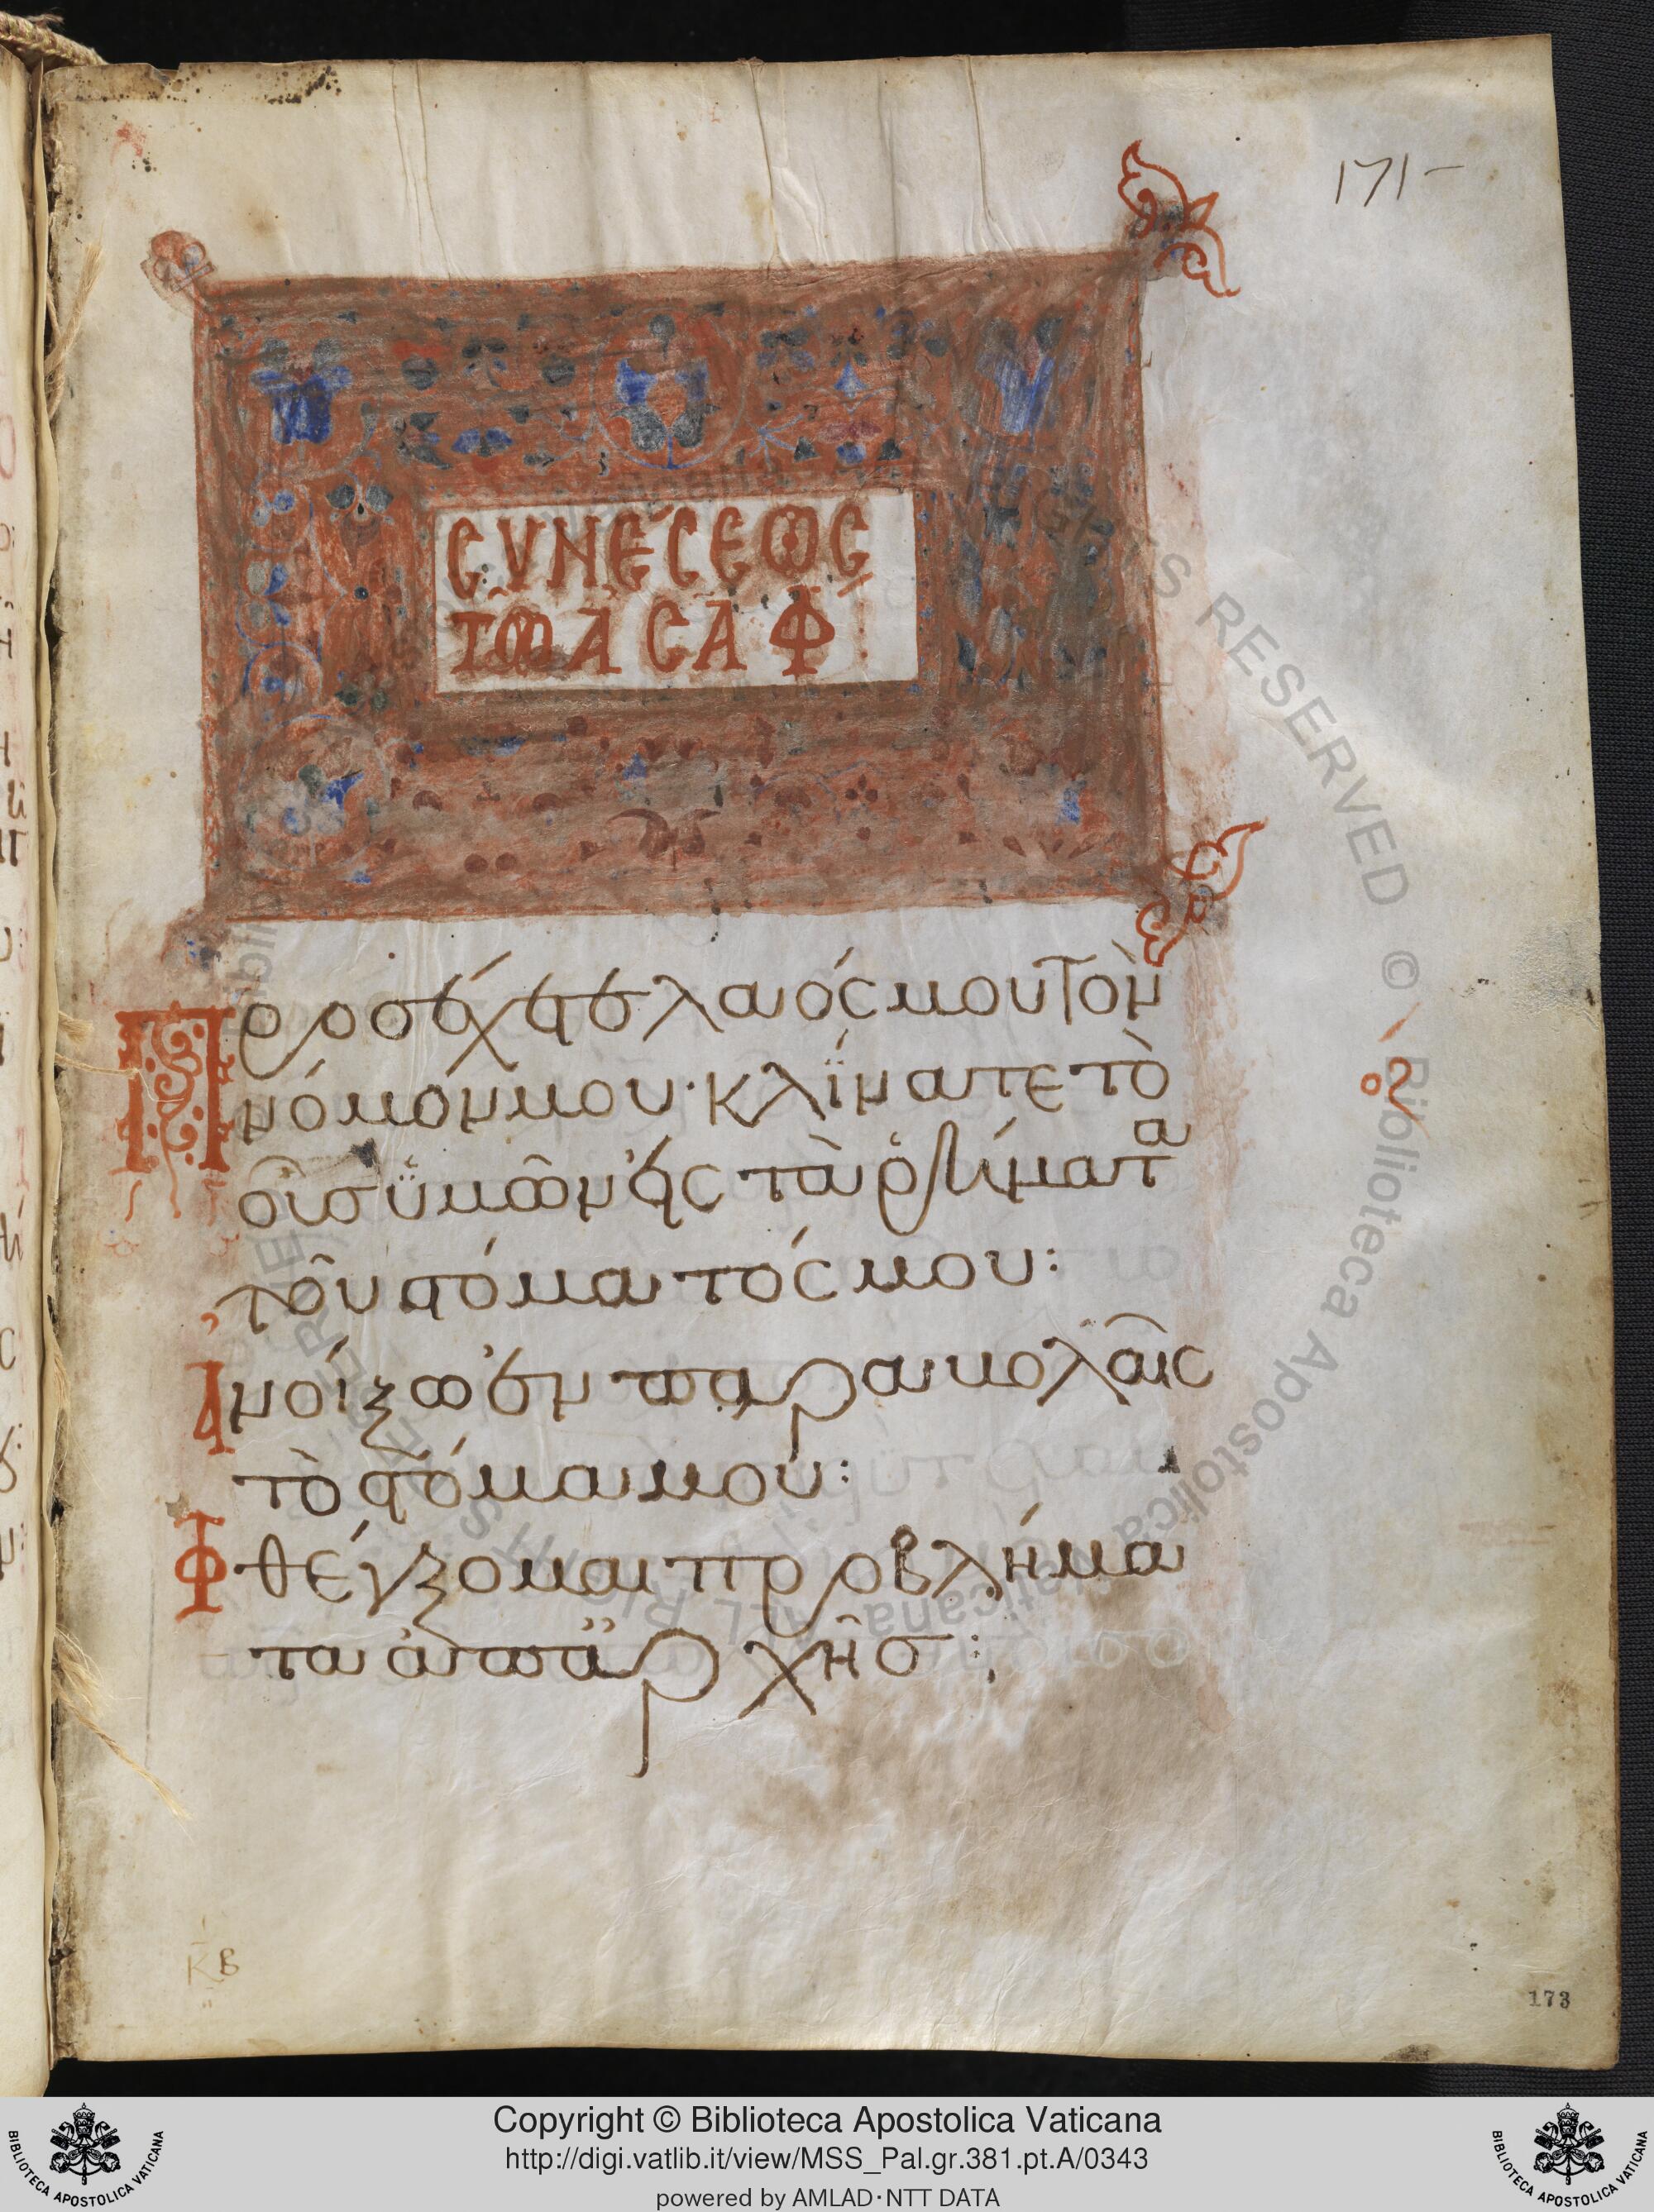 171-
CΥΝΈCΕΩC
ΤΩ̂ ἈCΑΦ
Προσέχετε λαός μου τὸν
νόμον μου· κλίνατε τὸ
οὖς ὑμῶν εἰς τὰ ῥήματα
τοῦ στόματός μου:
οζ
Ἀνοίξω ἐν παραβολαῖς
τὸ στόμα μου:
Φθέγξομαι προβλήμα
τα ἀπαρχῆσ:
κβ
173
BIBLIOTECA APOSTOLICA VATICANA
Copyright © Biblioteca Apostolica Vaticana
http://digi.vatlib.it/view/MSS_Pal.gr.381.pt.A/0343
powered by AMLAD·NTT DATA
BIBLIOTECA APOSTOLICA VATICANA